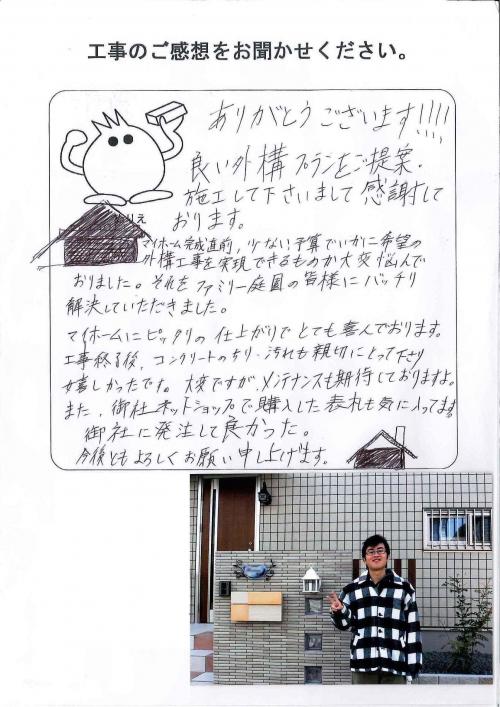 工事のご感想をお聞かせください。
ありがとうございます!!!!
良い外構プランをご提案.
施工して下さいまして感謝して
おります。
マイホーム完成直前,少ない予算でいかに希望の
外構工事を実現できるものか大変悩んで
おりました。それをファミリー庭園の皆様にバッチリ
解決していただきました。
マイホームにピッタリの仕上がりでとても喜んでおります。
工事終了後,コンクリートのちり・汚れも親切にとって下さり
嬉しかったです。大変ですが,メンテナンスも期待しておりますよ。
また,御社ネットショップで購入した表札も気に入ってます。
御社に発注して良かった。
今後ともよろしくお願い申し上げます。